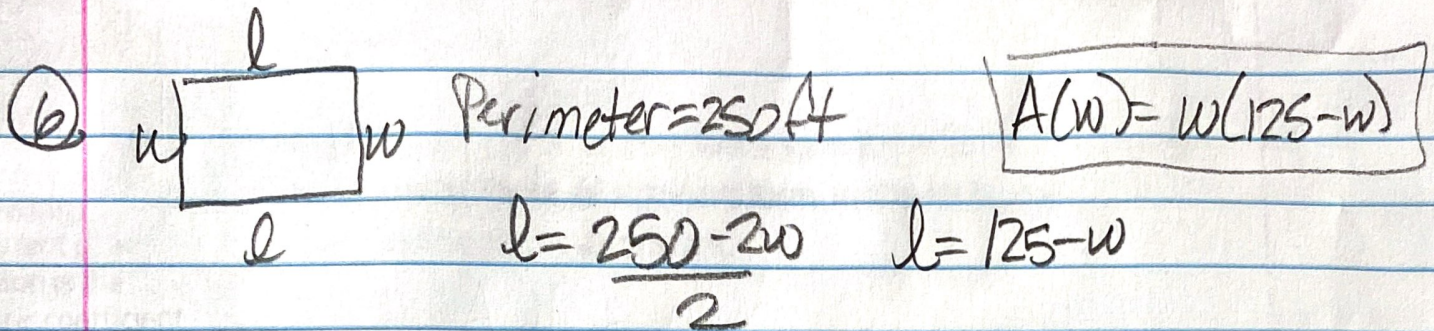 l
6. w w Perimeter=250ft A(w)= w(125-w)
l l= 250-2w / 2 l= 125-w